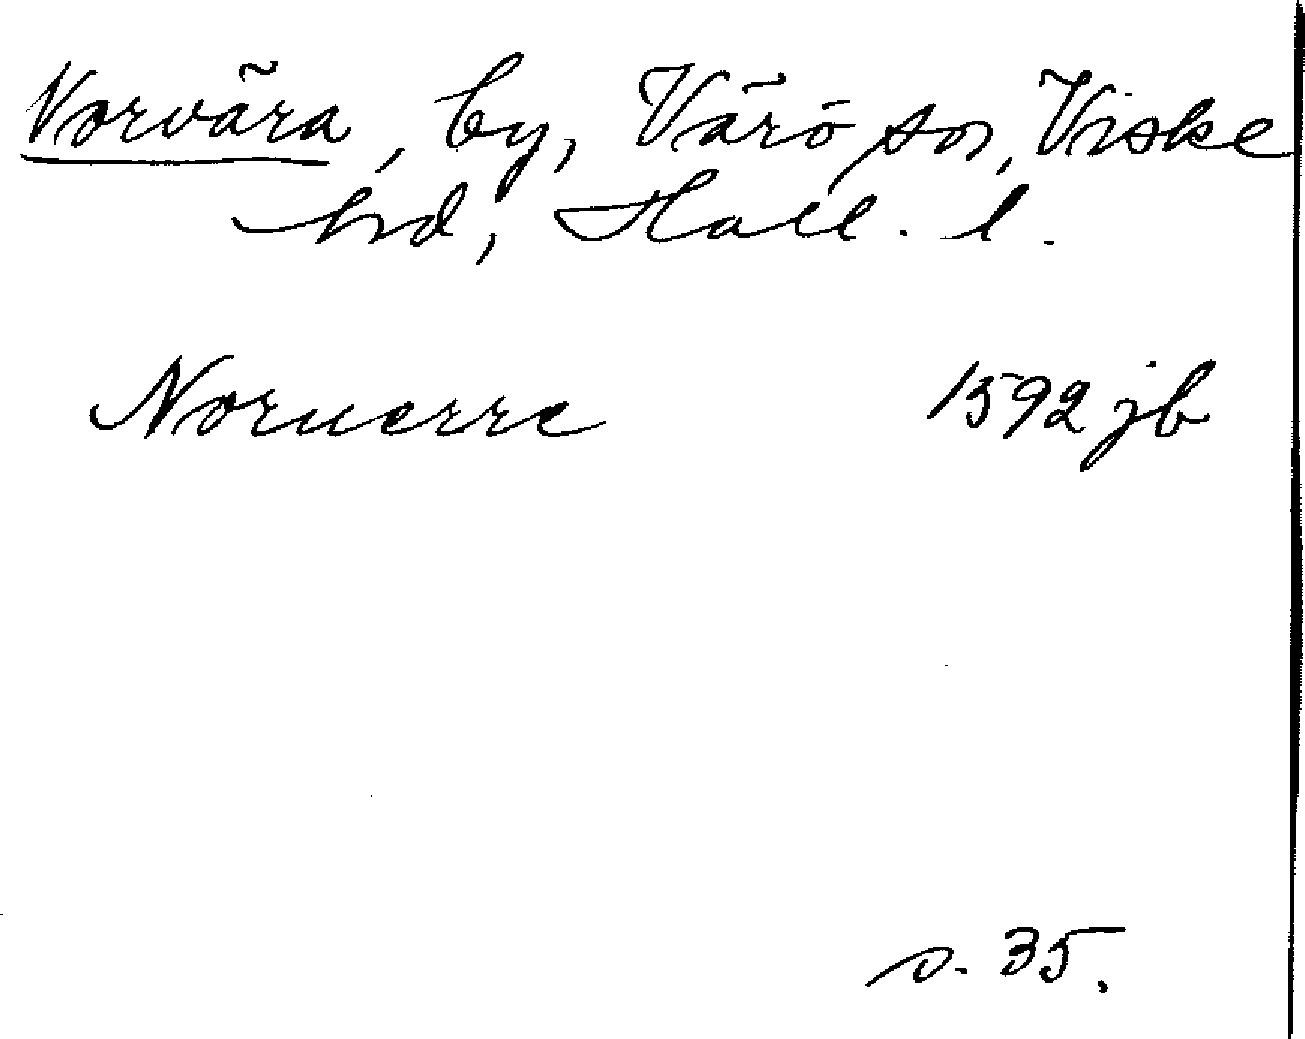 Norvära, by, Värö sn, Viske
hd, Hall. l.
Noruerre 1592 jb
s. 35.